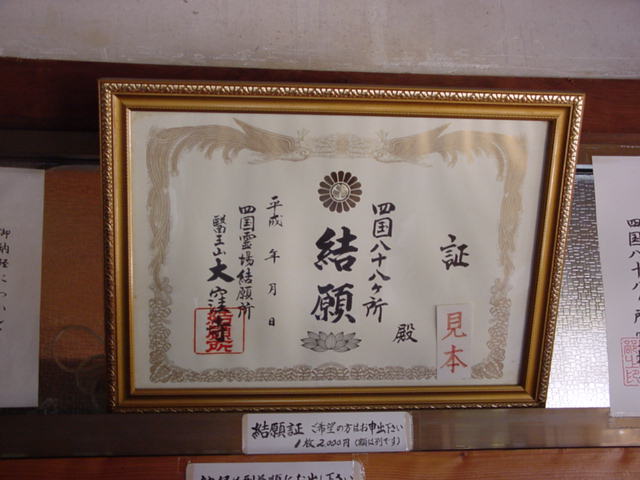 証
殿
四国八十八ヶ所
結願
平成　年　月　日
四国霊場結願所
醫王山 大窪寺
見本
結願証 ご希望の方はお申出下さい
1枚2,000円(額は別です)
御納経について
四国八十八ヶ所